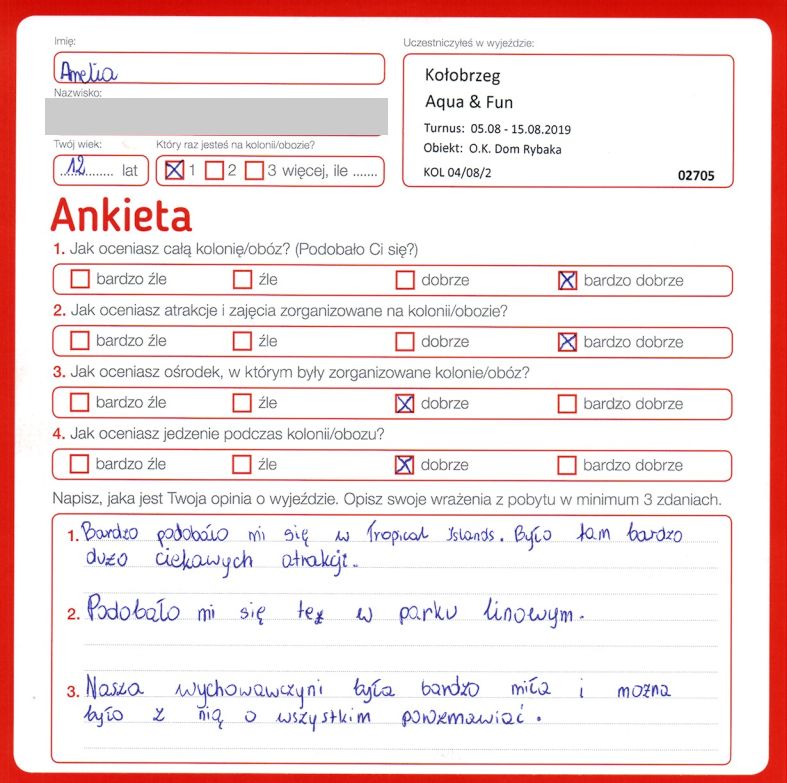 Imię:
Amelia
Nazwisko:
Twój wiek:
12 lat
Który raz jesteś na kolonii/obozie?
1 2 3 więcej, ile .......
Uczestniczyłeś w wyjeździe:
Kołobrzeg
Aqua & Fun
Turnus: 05.08 - 15.08.2019
Obiekt: O.K. Dom Rybaka
KOL 04/08/2 02705
Ankieta
1. Jak oceniasz całą kolonię/obóz? (Podobało Ci się?)
bardzo źle źle dobrze bardzo dobrze
2. Jak oceniasz atrakcje i zajęcia zorganizowane na kolonii/obozie?
bardzo źle źle dobrze bardzo dobrze
3. Jak oceniasz ośrodek, w którym były zorganizowane kolonie/obóz?
bardzo źle źle dobrze bardzo dobrze
4. Jak oceniasz jedzenie podczas kolonii/obozu?
bardzo źle źle dobrze bardzo dobrze
Napisz, jaka jest Twoja opinia o wyjeździe. Opisz swoje wrażenia z pobytu w minimum 3 zdaniach.
1. Bardzo podobało mi się w Tropical Islands. Było tam bardzo
dużo ciekawych atrakcji.
2. Podobało mi się też w parku linowym.
3. Nasza wychowawczyni była bardzo miła i można
było z nią o wszystkim porozmawiać.